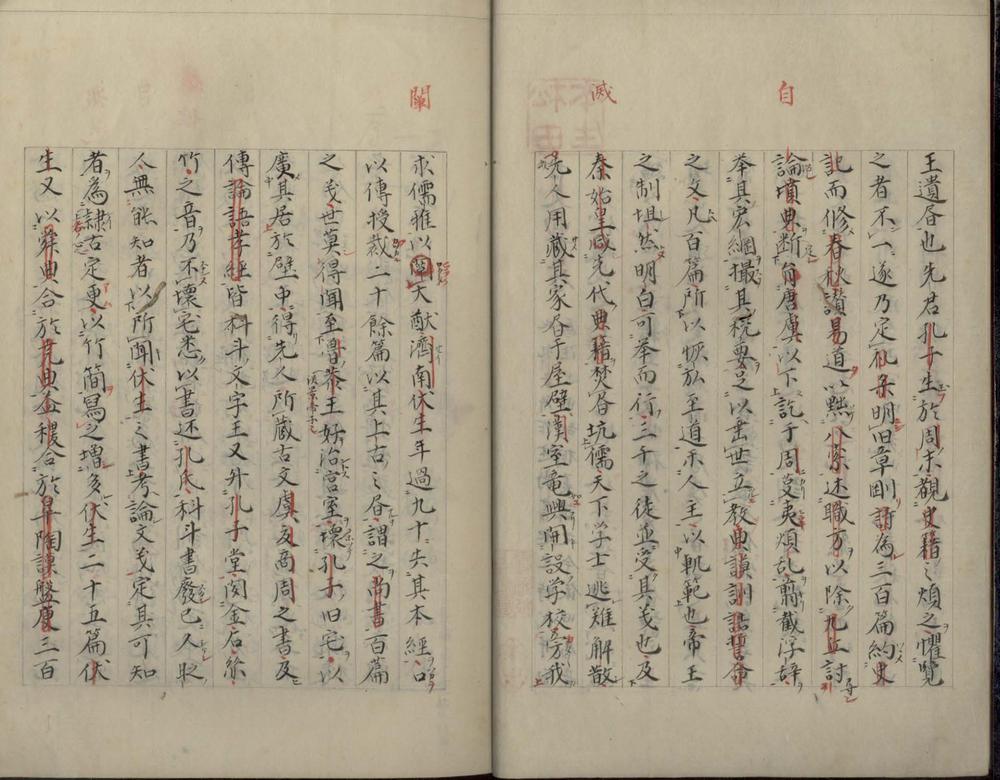 自
滅
王遺昏也先君孔子生於周末覩史籍之煩之懼覽
之者不一遂乃定礼樂明旧章刪詩為三百篇約史
記而修春秋讃易道以黜八索述職方以除九丘討
論墳典断自唐虞以下訖于周芟夷煩乱翦截浮辞
挙其宏綱撮其機要足以垂世立教典謨訓誥誓命
之文凡百篇所以恢弘至道示人主以軌範也帝王
之制坦然明白可挙而行三千之徒並受其義也及
秦始皇滅先代典籍焚昏坑儒天下学士逃難解散
我先人用蔵其家昏于屋壁漢室竜興開設学校旁
闡
求儒雅以闡大猷濟南伏生年過九十失其本経口
以傳授裁二十餘篇以其上古之昏謂之尚書百篇
之義世莫得聞至魯恭王好治宮室壊孔子旧宅以
廣其居於壁中得先人所蔵古文虞夏商周之書及
傳論語孝経皆科斗文字王又升孔子堂聞金石絲
竹之音乃不壊宅悉以書还孔氏科斗書廢已久
人無能知者以所聞伏生之書考論文義定其可知
者為隷古定更以竹簡寫之増多伏生二十五篇伏
生又以舜典合於尭典益稷合於皐陶謨盤庚三百